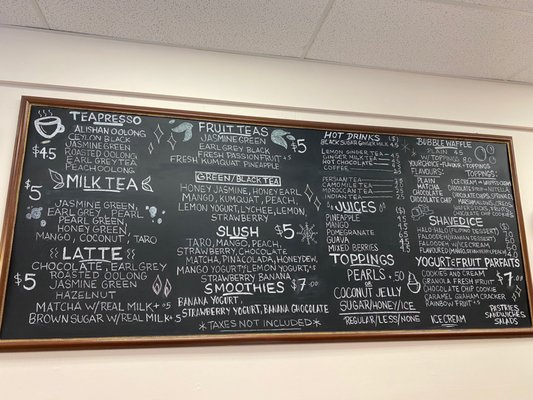 TEAPRESSO
ALISHAN OOLONG
CEYLON BLACK
JASMINE GREEN
ROASTED OOLONG
EARL GREY TEA
PEACH OOLONG
$4.5
MILK TEA
$5
JASMINE GREEN,
EARL GREY, PEARL
PEARL GREEN,
HONEY GREEN
MANGO, COCONUT, TARO
LATTE
$5
CHOCOLATE, EARL GREY
ROASTED OOLONG
JASMINE GREEN
HAZELNUT
MATCHA W/REAL MILK +.5
BROWN SUGAR W/REAL MILK +.5
FRUIT TEAS
$5
JASMINE GREEN
EARL GREY BLACK
FRESH PASSIONFRUIT +.5
FRESH KUMQUAT PINEAPPLE
GREEN/BLACK TEA
HONEY JASMINE, HONEY EARL
MANGO, KUMQUAT, PEACH,
LEMON YOGURT, LYCHEE, LEMON
STRAWBERRY
SLUSH $5
TARO, MANGO, PEACH,
STRAWBERRY CHOCOLATE
MATCHA, PINACOLADA, HONEYDEW,
MANGO YOGURT/LEMON YOGURT +.5
STRAWBERRY BANANA
SMOOTHIES $7.00
BANANA YOGURT,
STRAWBERRY YOGURT, BANANA CHOCOLATE
*TAXES NOT INCLUDED*
HOT DRINKS
BLACK SUGAR GINGER
LEMON GINGER TEA
GINGER MILK TEA
HOT CHOCOLATE
COFFEE
CAMOMILE TEA
MOROCCAN TEA
INDIAN TEA
JUICES
PINEAPPLE
MANGO
POMEGRANATE
GUAVA
MIXED BERRIES
TOPPINGS
PEARLS
OR
COCONUT JELLY
SUGAR/HONEY/ICE
REGULAR/LESS/NONE
BUBBLE WAFFLE
PLAIN $5
W/TOPPINGS 8.0
YOUR CHOICE - FLAVOUR + TOPPINGS
FLAVOURS
PLAIN
MATCHA
CHOCOLATE
CHOCOLATE CHIP
TOPPINGS:
SHAVED ICE
HALO HALO (FILIPINO DESSERT)
FALOODEH (PERSIAN DESSERT)
FALOODEH W/ICE CREAM
YOGURT & FRUIT PARFAITS
$7.00
COOKIES AND CREAM
GRANOLA FRESH FRUIT
CHOCOLATE CHIP COOKIE
CARAMEL GRAHAM CRACKER
RAINBOW FRUIT +.5
ICE CREAM
PASTRIES
SANDWICHES
SALADS